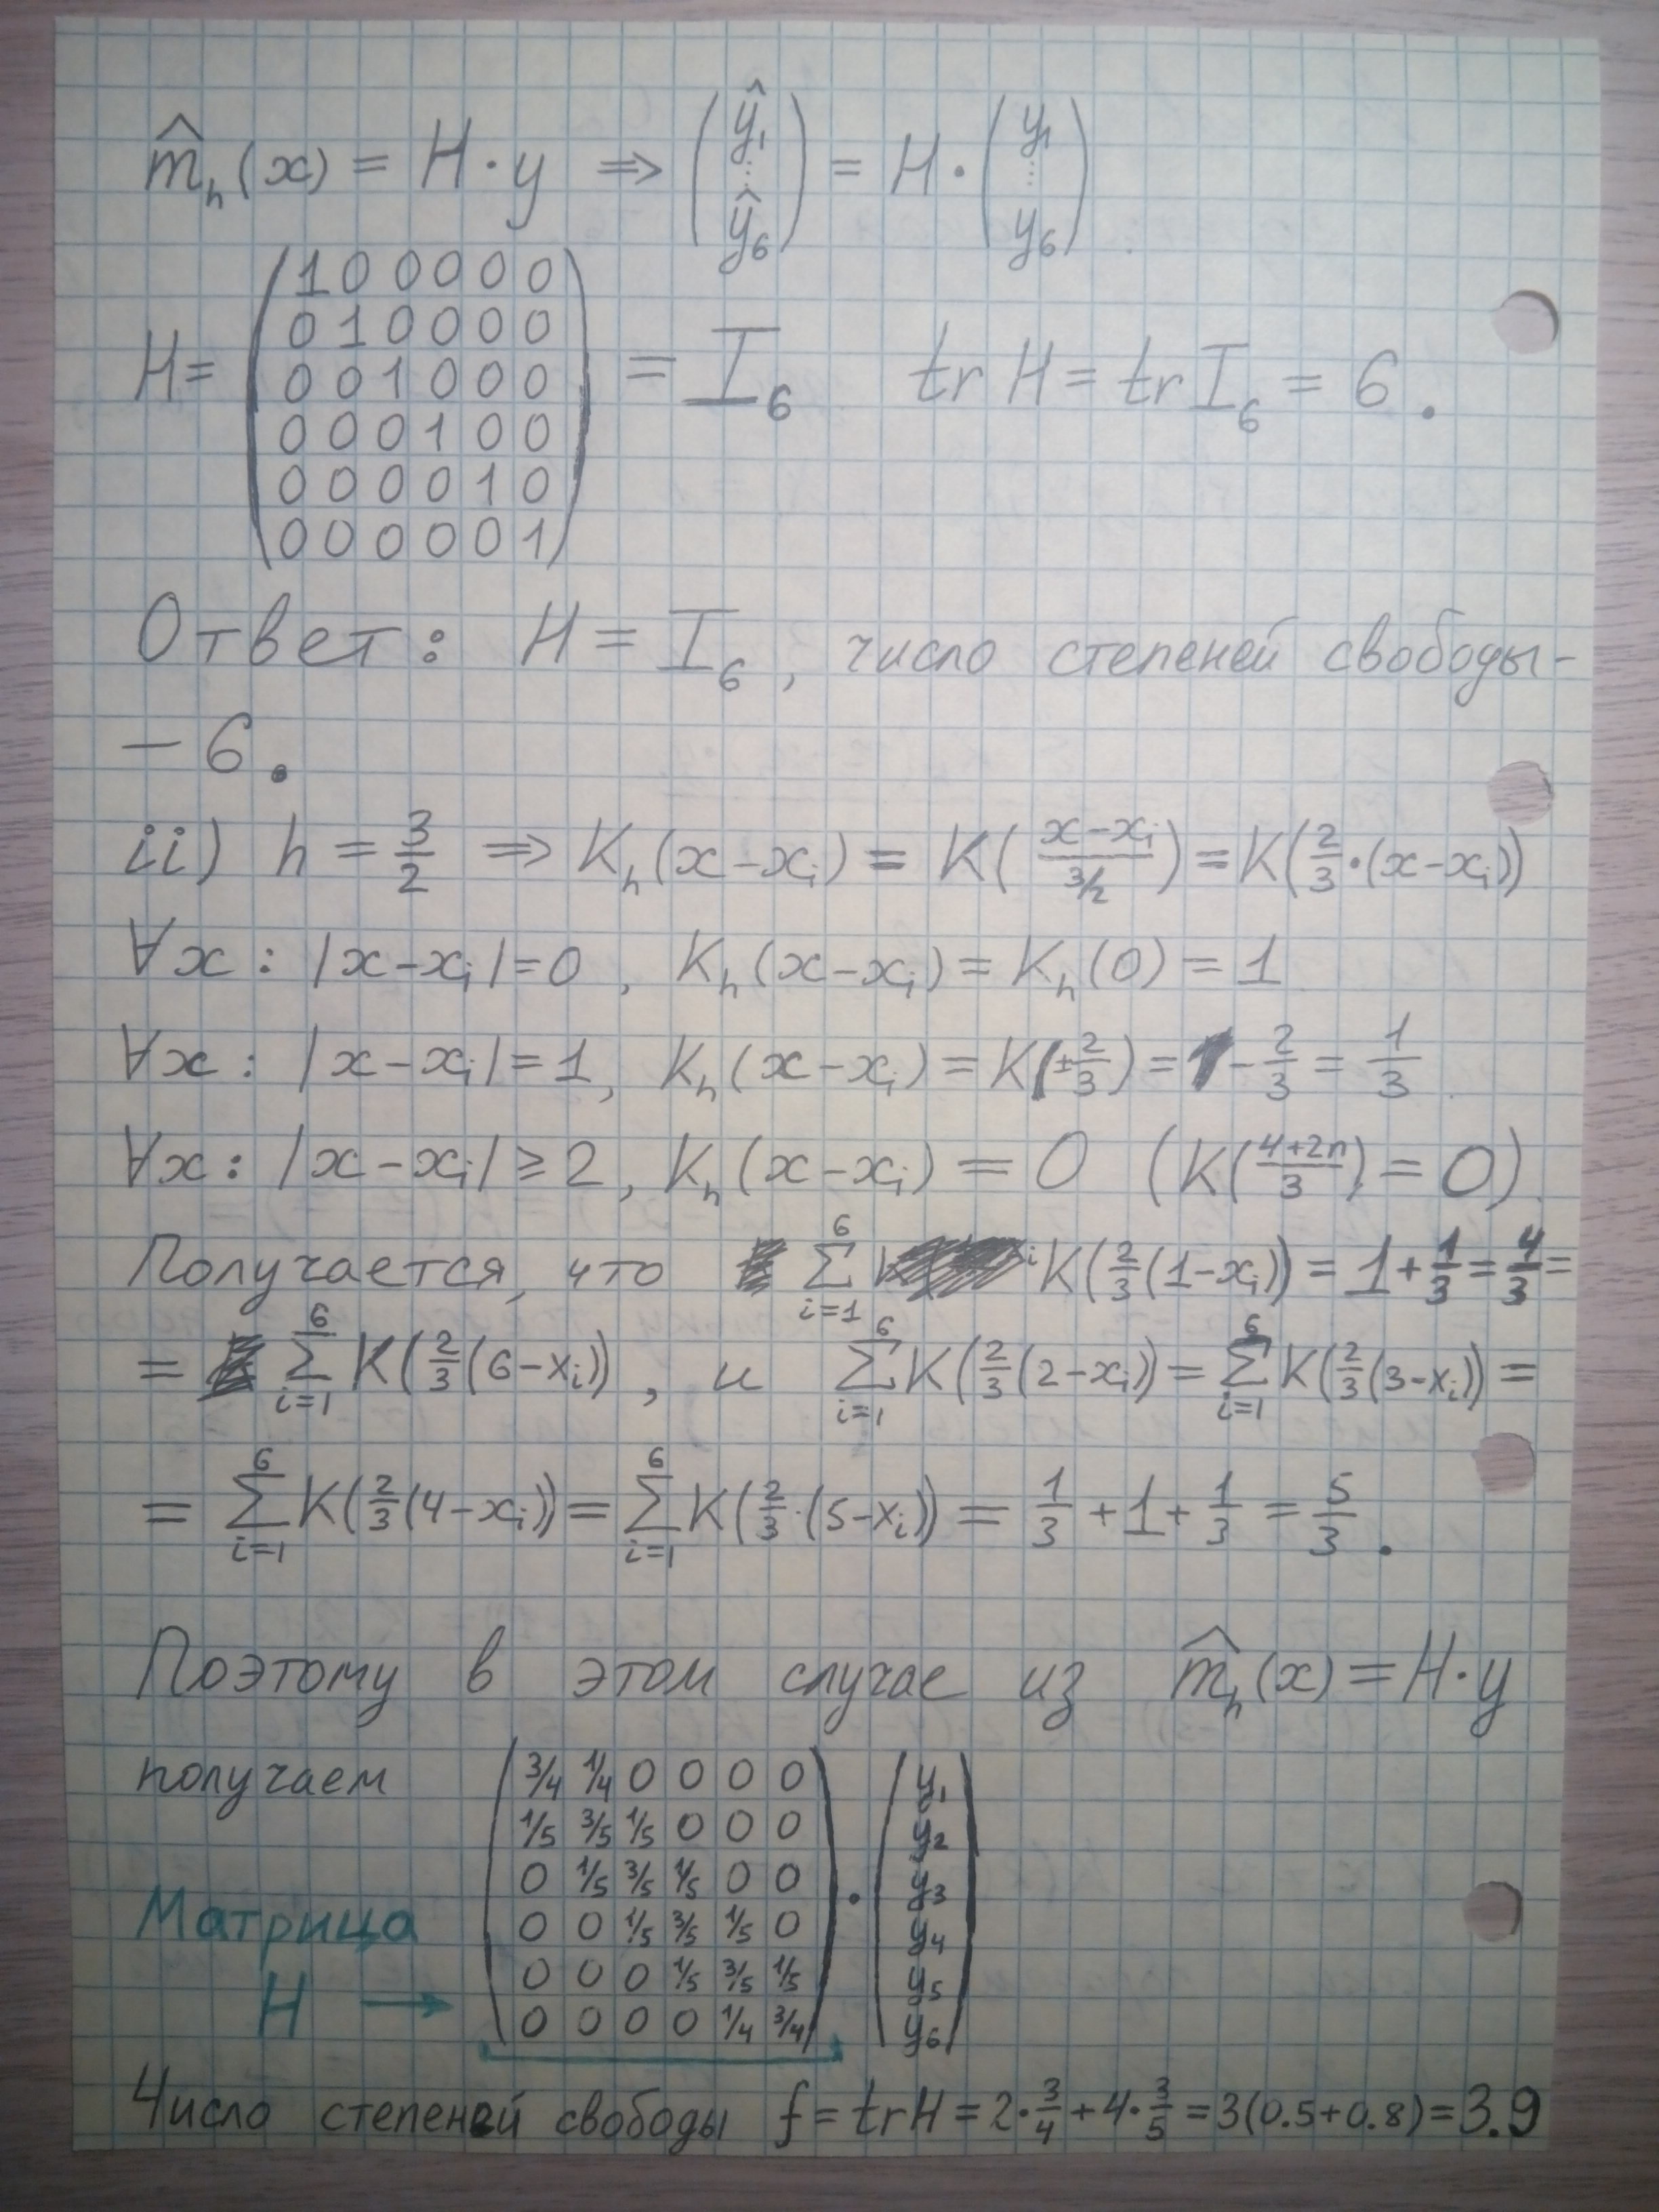 m̂ₕ(x) = H · y ⇒ (ŷ₁ ... ŷ₆) = H · (y₁ ... y₆)
H = (1 0 0 0 0 0
0 1 0 0 0 0
0 0 1 0 0 0 = I₆ tr H = tr I₆ = 6.
0 0 0 1 0 0
0 0 0 0 1 0
0 0 0 0 0 1)
Ответ: H = I₆, число степеней свободы -
- 6.
ii) h = 3/2 ⇒ Kₕ(x-xᵢ) = K((x-xᵢ)/(3/2)) = K(2/3·(x-xᵢ))
∀x: |x-xᵢ|=0, Kₕ(x-xᵢ) = Kₕ(0) = 1
∀x: |x-xᵢ|=1, Kₕ(x-xᵢ) = K(±2/3) = 1 - 2/3 = 1/3
∀x: |x-xᵢ| ⩾ 2, Kₕ(x-xᵢ) = 0 (K((4+2n)/3) = 0)
Получается, что ∑ᵢ₌₁⁶ K(2/3(1-xᵢ)) = 1 + 1/3 = 4/3 =
= ∑ᵢ₌₁⁶ K(2/3(6-xᵢ)), и ∑ᵢ₌₁⁶ K(2/3(2-xᵢ)) = ∑ᵢ₌₁⁶ K(2/3(3-xᵢ)) =
= ∑ᵢ₌₁⁶ K(2/3(4-xᵢ)) = ∑ᵢ₌₁⁶ K(2/3·(5-xᵢ)) = 1/3 + 1 + 1/3 = 5/3.
Поэтому в этом случае из m̂ₕ(x) = H · y
получаем (3/4 1/4 0 0 0 0 (y₁
1/5 3/5 1/5 0 0 0 y₂
0 1/5 3/5 1/5 0 0 · y₃
Матрица 0 0 1/5 3/5 1/5 0 y₄
0 0 0 1/5 3/5 1/5 y₅
H → 0 0 0 0 1/4 3/4) y₆)
Число степеней свободы f = tr H = 2·3/4 + 4·3/5 = 3(0.5+0.8) = 3.9